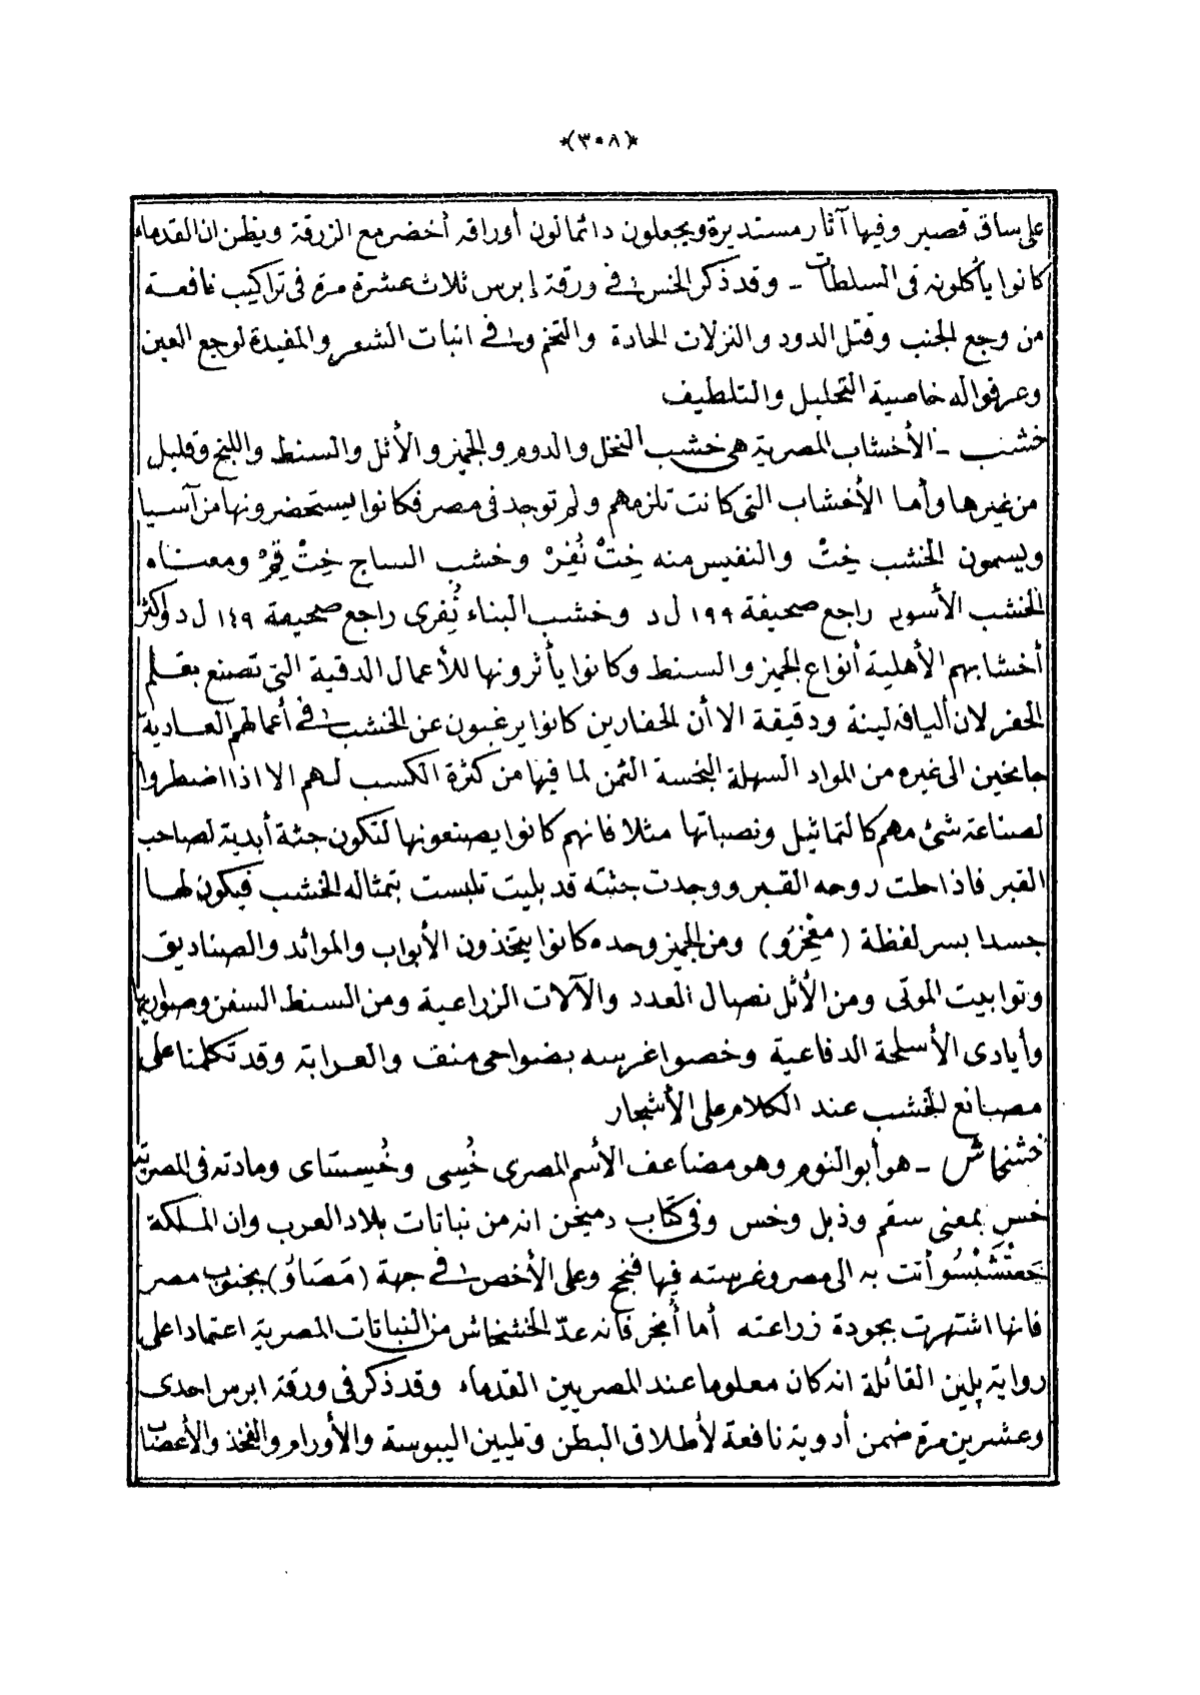 *(٣٠٨)*
على ساق قصير وفيها آثار مستديرة ويجعلون دائما لون أوراقه أخضر مع الزرقة ويظن ان القدماء
كانوا يأكلونه فى السلطات ـ وقد ذكر الخس فى ورقة إبرس ثلاث عشرة مرة فى تراكيب نافعة
من وجع الجنب وقتل الدود والنزلات الحادة والتخم وفى انبات الشعر والمفيدة لوجع العين
وعرفوا له خاصية التحليل والتلطيف
خشب ـ الأخشاب المصرية هى خشب النخل والدوم والجميز والأثل والسنط واللبخ وقليل
من غيرها وأما الأخشاب التى كانت تلزمهم ولم توجد فى مصر فكانوا يستحضرونها من آسيا
ويسمون الخشب خِتْ والنفيس منه خِتْ نُفِرْ وخشب الساج خِتْ قِمْ ومعناه
الخشب الأسود راجع صحيفة ١٩٩ ل د وخشب البناء نُفرى راجع صحيفة ١٤٩ ل د وأكثر
أخشابهم الأهلية أنواع الجميز والسنط وكانوا يأثرونها للأعمال الدقيقة التى تصنع بقلم
الحفر لان أليافه لينة ودقيقة الا أن الحفارين كانوا يرغبون عن الخشب فى أعمالهم العادية
جانحين الى غيره من المواد السهلة البخسة الثمن لما فيها من كثرة الكسب لهم الا اذا اضطروا
لصناعة شئ مهم كالتماثيل ونصباتها مثلا فانهم كانوا يصنعونها لتكون جثة أبدية لصاحب
القبر فاذا حلت روحه القبر ووجدت جثته قد بليت تلبست بتمثاله الخشب فيكون لها
جسدا بسر لفظة (مغخرو) ومن الجميز وحده كانوا يتخذون الأبواب والموائد والصناديق
وتوابيت الموتى ومن الأثل نصال العدد والآلات الزراعية ومن السنط السفن وصواريها
وأيادى الأسلحة الدفاعية وخصوا غرسه بضواحى منف والعرابة وقد تكلمنا على
مصانع الخشب عند الكلام على الأشجار
خشخاش ـ هو أبو النوم وهو مضاعف الأسم المصرى خُسِى وخُسِستاى ومادته فى المصرية
خس بمعنى سقم وذبل وخس وفى كتاب دميخن انه من نباتات بلاد العرب وان الملكة
حَعتْشَبْسُو أتت به الى مصر وغرسته فيها فنجح وعلى الأخص فى جهة (مَصَاوُ) بجنوب مصر
فانها اشتهرت بجودة زراعته أما أُنجر فانه عدّ الخشخاش من النباتات المصرية اعتمادا على
رواية پلين القائلة انه كان معلوما عند المصريين القدماء وقد ذكر فى ورقة ابرس احدى
وعشرين مرة ضمن أدوية نافعة لأطلاق البطن وتليين اليبوسة والأورام والفخذ والأعصاب